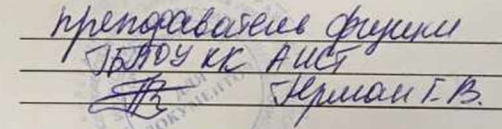 преподаватель физики
ГБПОУ КК АИСТ
Нерман Г.В.
ДОКУМЕНТО